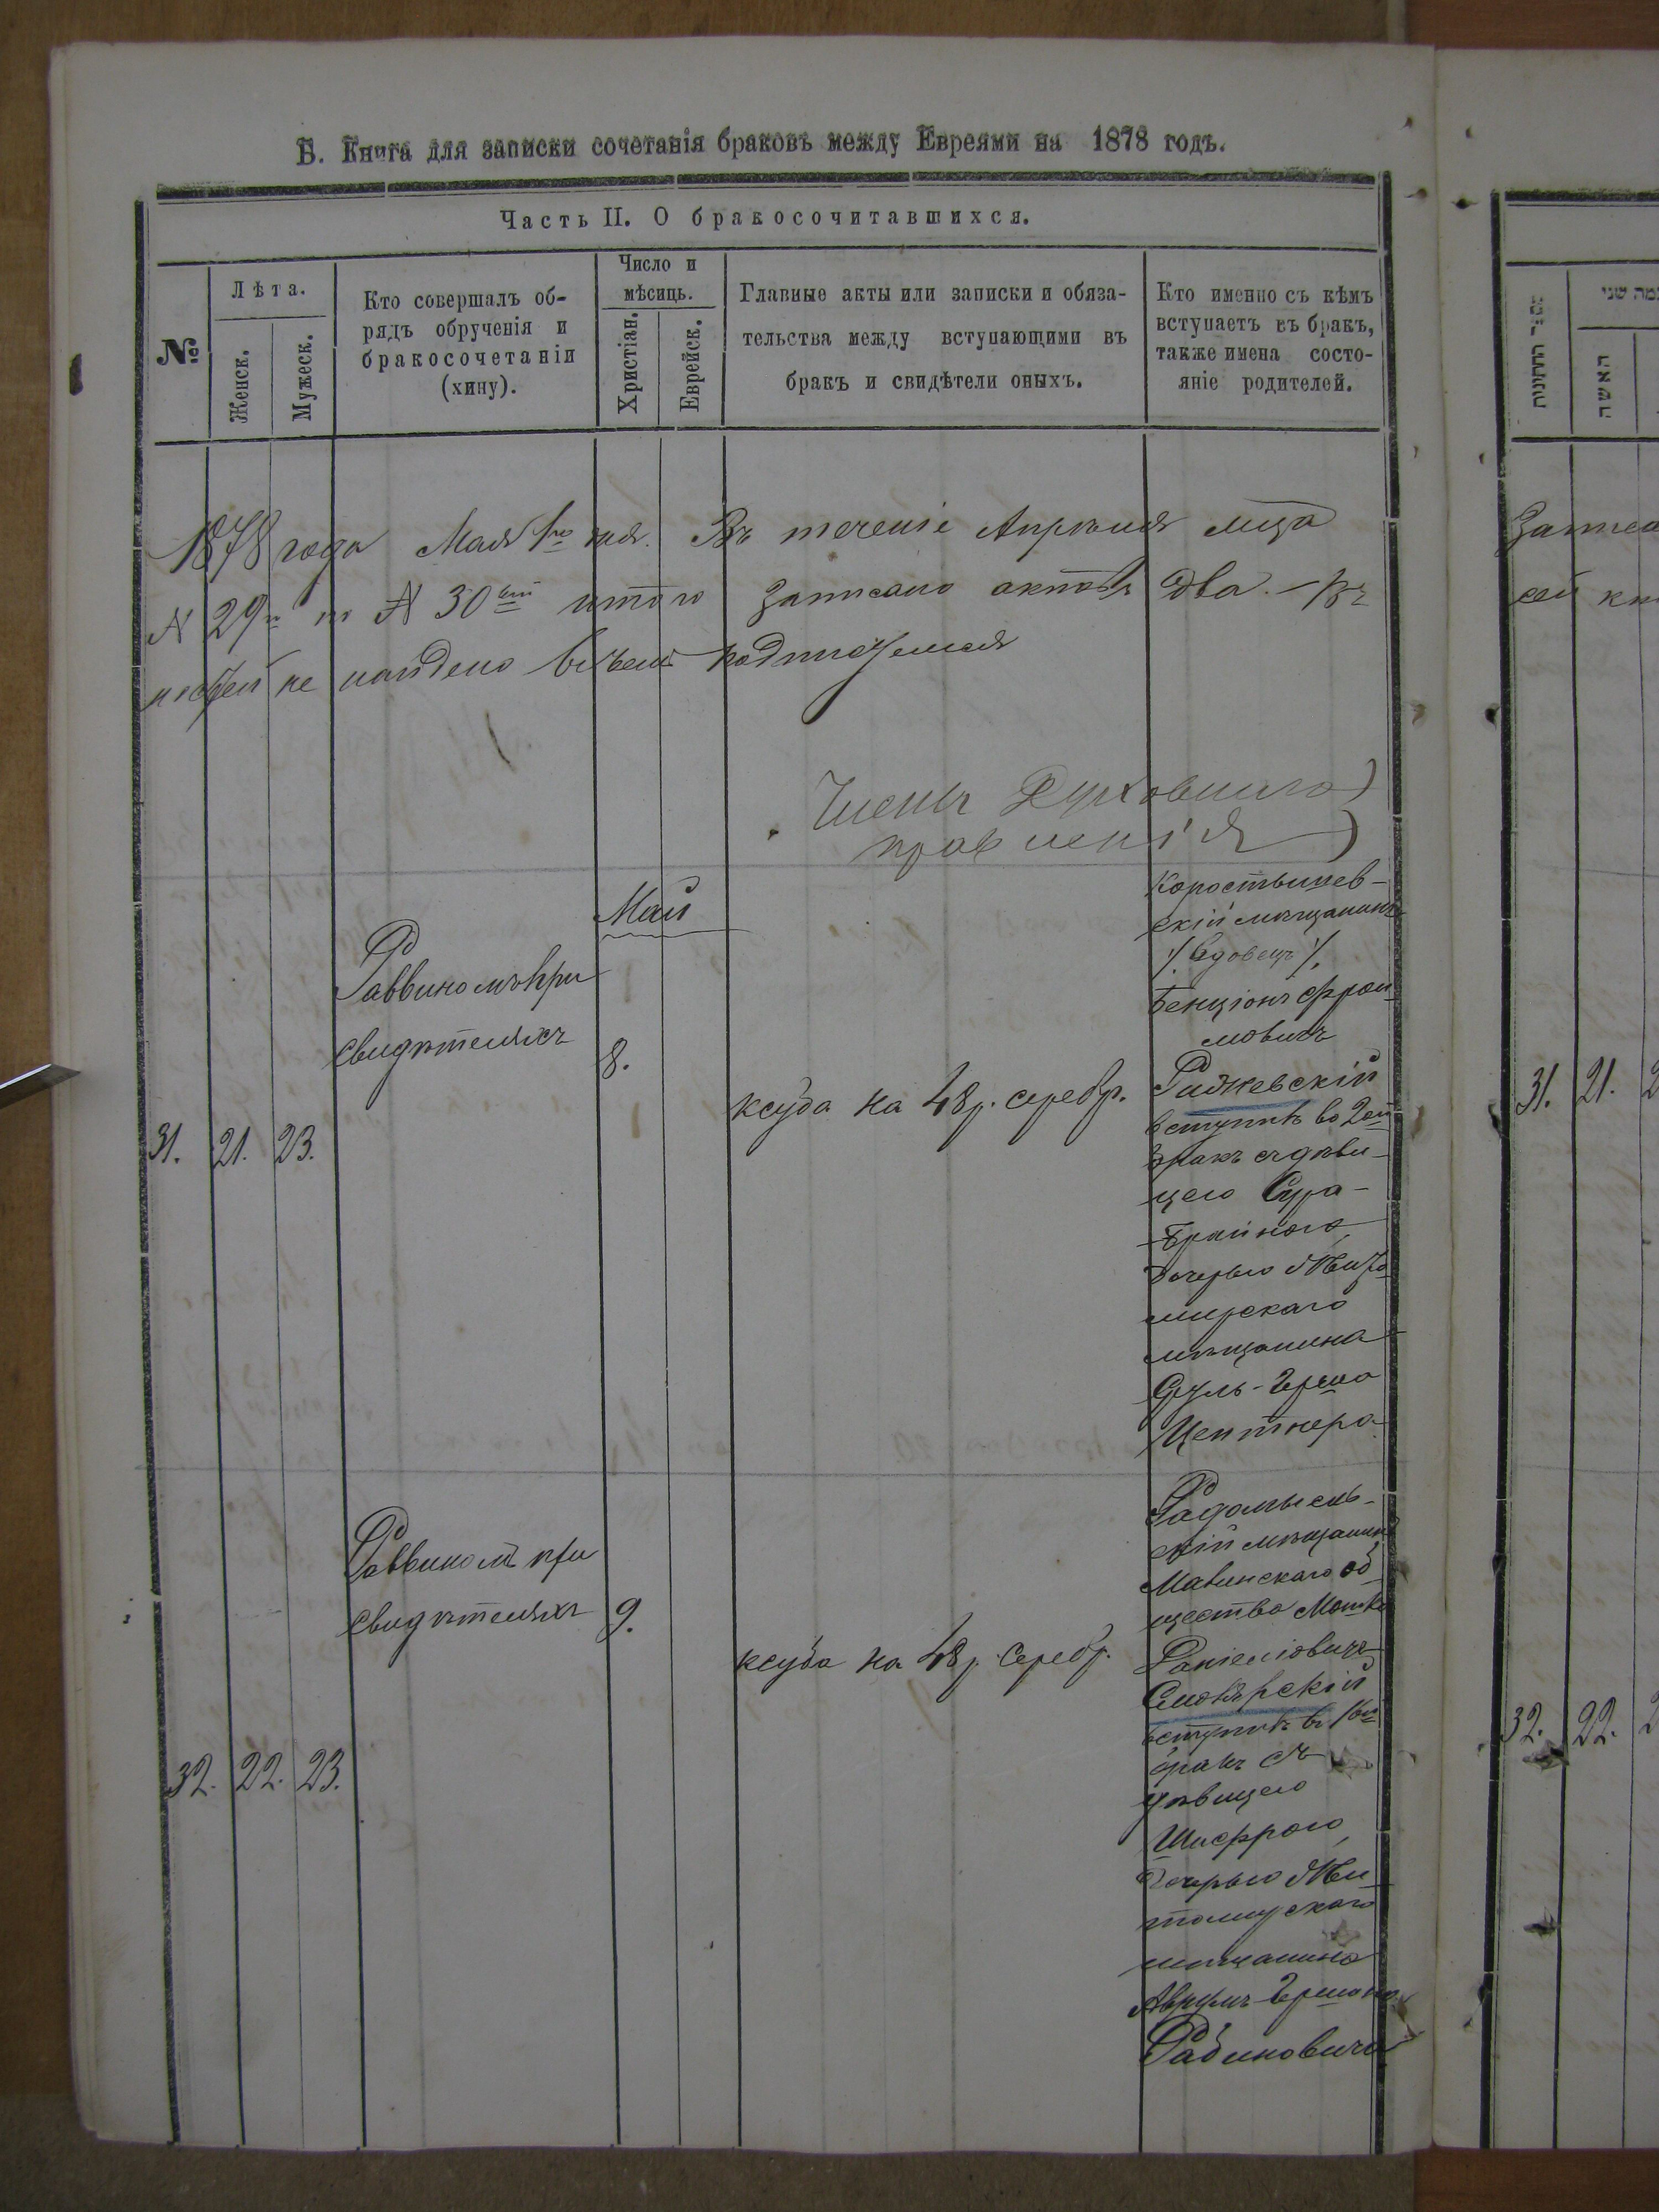 Б. Книга для записки сочетанія браковъ между Евреями на 1878 годъ.
Часть II. О бракосочитавшихся.
№
Лѣта.
Женск.
Мужеск.
Кто совершалъ об-
рядъ обрученія и
бракосочетаніи
(хину).
Число и
мѣсиць.
Христіан.
Еврейск.
Главные акты или записки и обяза-
тельства между вступающими въ
бракъ и свидѣтели оныхъ.
Кто именно съ кѣмъ
вступаетъ въ бракъ,
также имена состо-
яніе родителей.
1878 года Мая 1го дня. Въ теченіе Апрѣля мца
№ 29 по № 30ый итого записано актовъ два. – Въ
не найдено въ чемъ подписуемся
Членъ Духовнаго)
правленія)
Май
31. 21. 23.
Раввиномъ при
свидѣтеляхъ
8.
ксуба на 48 р. серебр.
Коростышев-
скій мѣщанинъ
/. Вдовецъ /.
Бенціонъ Фрои-
мовичъ
Рижевскій
вступилъ во 2ой
бракъ съ дѣви-
цею Сура-
Брайною,
дочерью Жито-
мирскаго
мѣщанина
Сруль-Герша
Центнера
32. 22. 23.
Раввиномъ при
свидѣтеляхъ
9.
ксуба на 48 р. серебр.
Радомысль-
скій мѣщанинъ
Малинскаго об-
щества Мошко
Даніеліовичъ
Смолярскій
вступилъ въ 1ый
бракъ съ
дѣвицею
Шифрою,
дочерью Жи-
томирскаго
мѣщанина
Аврумъ-Гершона
Рабиновича
האשה
31. 21. 2
32. 22. 2